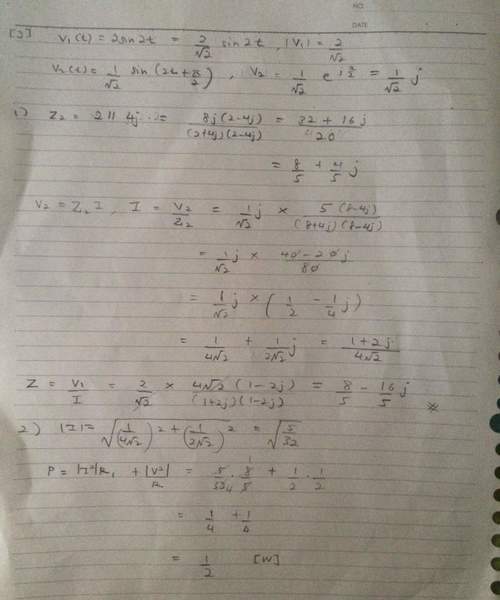 NO.
DATE
[3] V₁(t) = 2sin2t = 2/√2 sin2t, |V₁| = 2/√2
V₂(t) = 1/√2 sin(2t + π/2), V₂ = 1/√2 e^{jπ/2} = 1/√2 j
1) Z₂ = 2 || 4j = 8j(2-4j)/(2+4j)(2-4j) = 32 + 16j/20
= 8/5 + 4/5 j
V₂ = Z₂ I, I = V₂/Z₂ = 1/√2 j × 5(8-4j)/(8+4j)(8-4j)
= 1/√2 j × 40 - 20j/80
= 1/√2 j × (1/2 - 1/4 j)
= 1/4√2 + 1/2√2 j = 1+2j/4√2
Z = V₁/I = 2/√2 × 4√2(1-2j)/(1+2j)(1-2j) = 8/5 - 16/5 j
2) |I| = √(1/4√2)² + (1/2√2)² = √5/32
P = |I|²R₁ + |V₂|²/R = 5/32 · 8/5 + 1/2 · 1/2
= 1/4 + 1/4
= 1/2 [W]